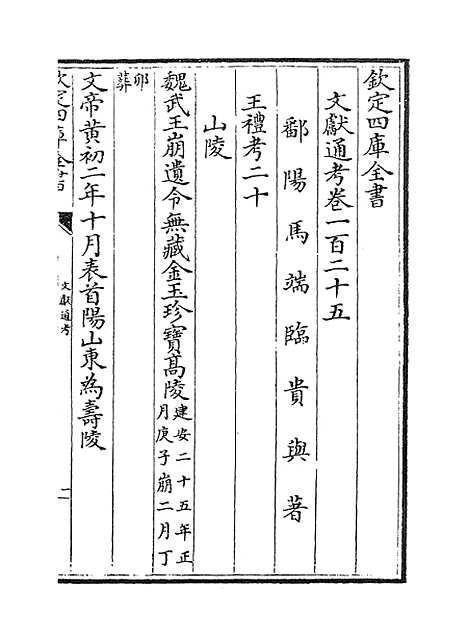 欽定四庫全書
文獻通考卷一百二十五
鄱陽馬端臨貴與著
王禮考二十
山陵
魏武王崩遺令無藏金玉珍寶髙陵建安二十五年正
月庚子崩二月丁
卯
葬
文帝黄初二年十月表首陽山東為壽陵
欽定四庫全書
文獻通考